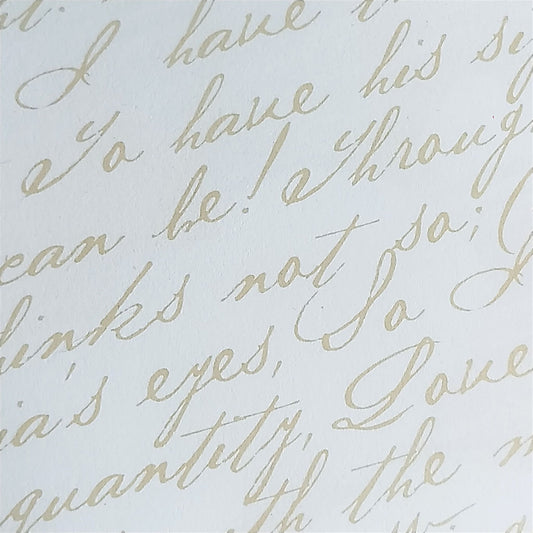 I have
To have his
can be! Throug
hinks not so;
ia's eyes, So I
quantity, Love
the